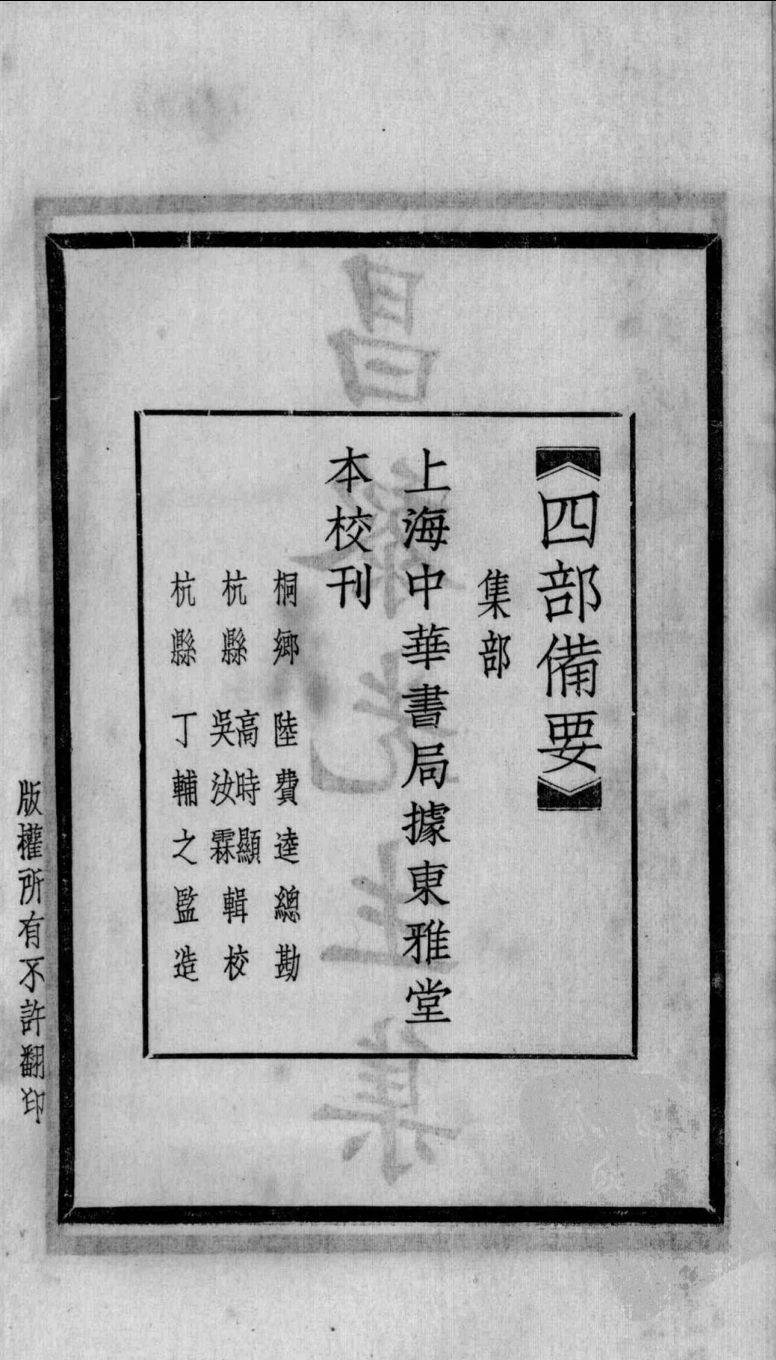 四部備要
集部
上海中華書局據東雅堂
本校刊
桐鄉 陸費逵總勘
杭縣 高時顯 吳汝霖 輯校
杭縣 丁輔之監造
版權所有不許翻印